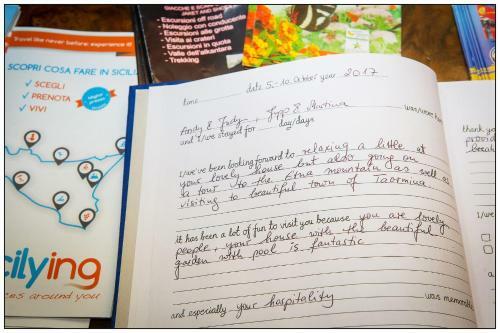 Travel like never before: experience it
SCOPRI COSA FARE IN SICILIA
✓ SCEGLI
✓ PRENOTA
✓ VIVI
cilying
ces around you
GIACCHE E SCAR
JAKET AND SHOE
- Escursioni off road
- Noleggio con conducente
- Escursioni alle grotte
- Visita ai crateri
- Escursioni in quota
- Valle dell'alcantara
- Trekking
time date 5.-10. October year 2017
Andy & Judy + Jyp & Martina was/were here
and I/we stayed for day/days
I/we've been looking forward to relaxing a little at
your lovely house but also going on
a tour to the Etna mountain as well as
visiting to beautiful town of Taormina.
it has been a lot of fun to visit you because you are lovely
people + your house with the beautiful
garden with pool is fantastic
and especially your hospitality was memorable
thank you
provid
break
I/we